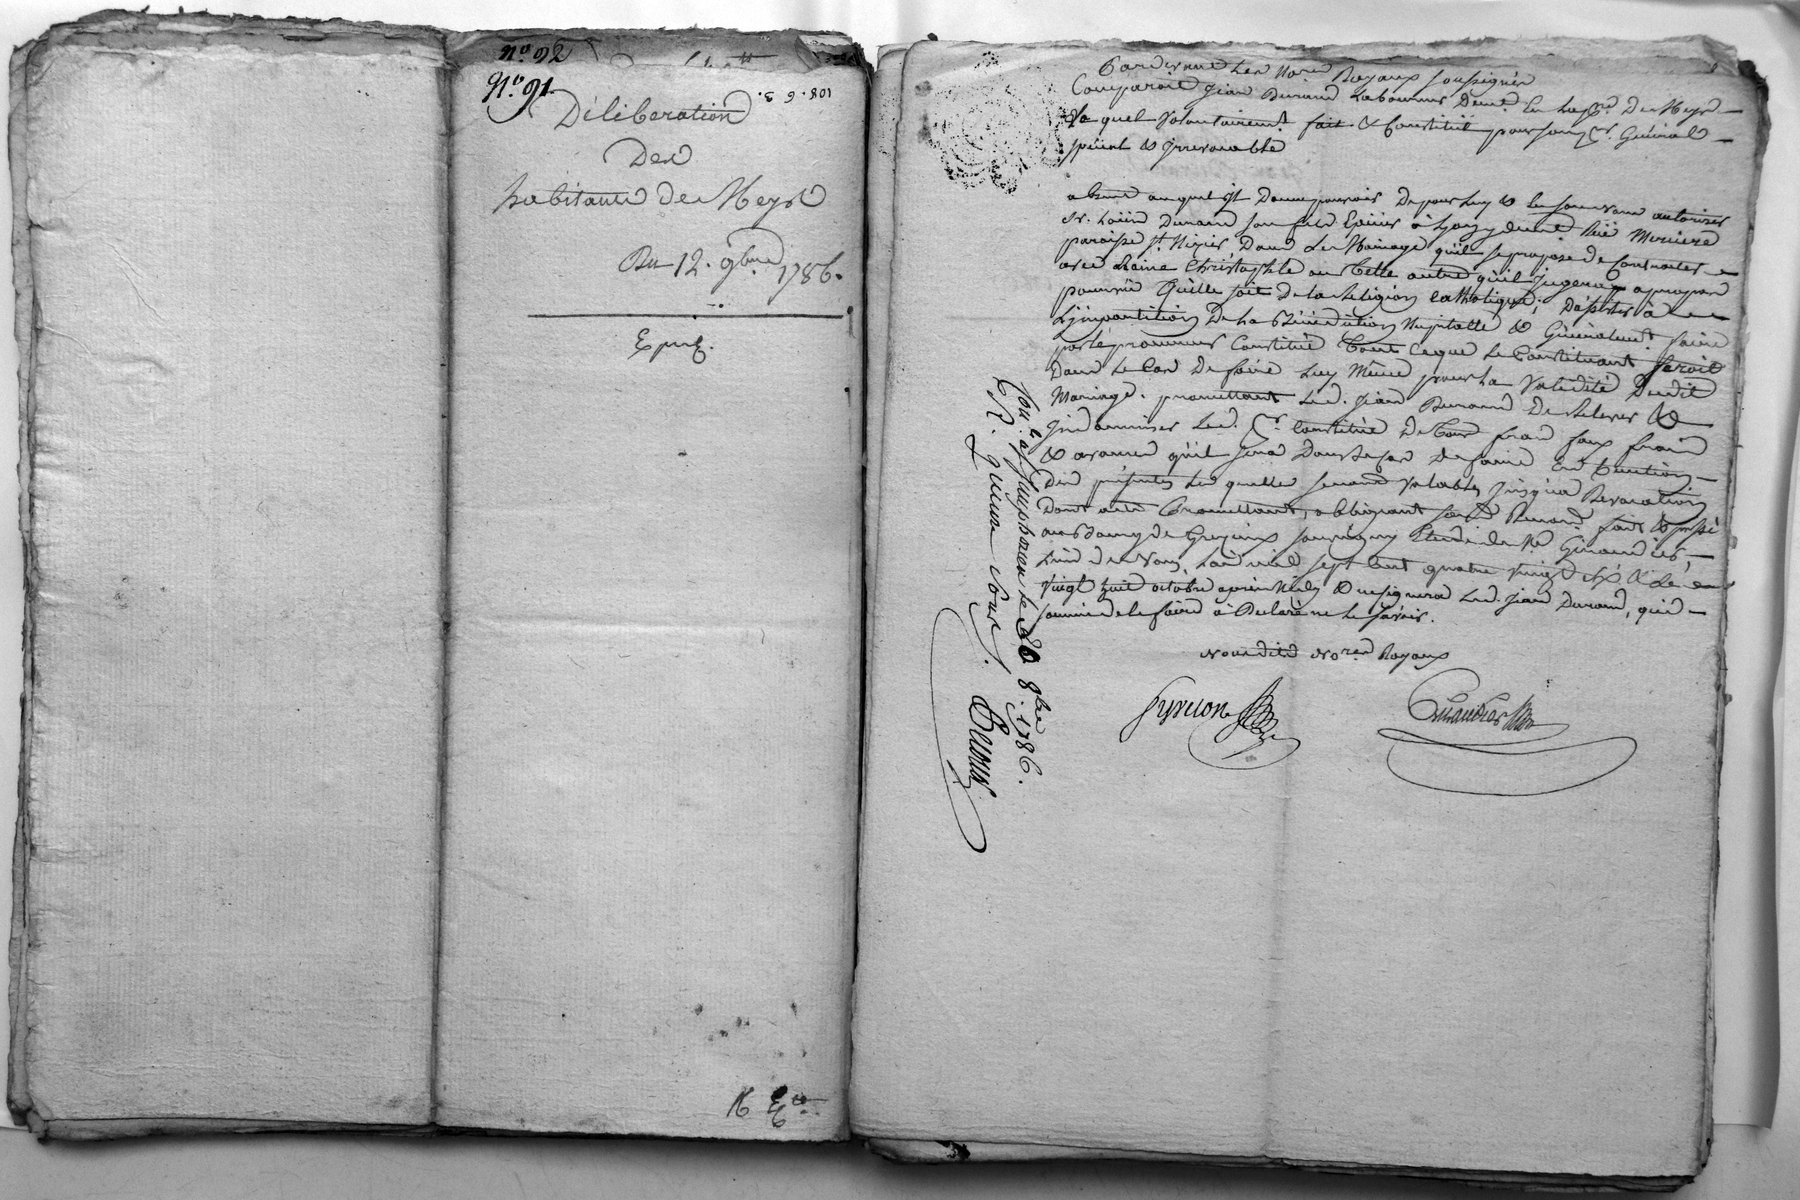 N.º 92
N.º 91
108. 6 3.
Déliberation
Des
habitants de Meys
Du 12. 9bre 1786.
Exped.
16
Pardevant Les No.res Royaux soussignés
Comparoit Jean Durand Laboureur Demt. En La psse. De Meys
Le quel Volontairemt. fait & Constitüé pour son pr. Général
spécial & Irrevocable
absent auquel Il Donne pouvoir De pour Luy & En son nom autoriser
sr. Durand son fils Epicier à Lyon y demt. Rüe Merciere
paroisse st. Nizier Dans Le Mariage qu'il se propose de Contracter
avec Reine Christophle ou telle autre qu'il Jugera apropos
pourvüe qu'elle soit De la Religion Catholique, D'assister à
L'impartition De La Bénédiction Nuptialle & Généralemt. faire
par le procureur Constitüé Tout ce que Le Constituant feroit
Dans Le Cas De faire Luy Même pour La Validité Dudit
Mariage. promettant Led. Jean Durand De Relever &
Indamniser Led. pr. Constitüé De Tous frais faux frais
& avances qu'il sera Dans Le Cas De faire En
Des présentes Les quelles seront Valables Jusqu'a Revocation
Dont acte Promettant, obligeant Durand fait & passé
au Bourg de Grezieux Etude de Me Giraudier
L'un de Nous, L'an mil sept cent quatre vingt six & Le
vingt huit octobre après Midy & ne signera Led. Jean Durand, qui
sommé de le faire à Déclaré ne Le sçavoir.
Nousdits No.res Royaux
Guyon
Giraudier
Con.lé à st. simphorien le 8bre 1786.
R. quinze sous.